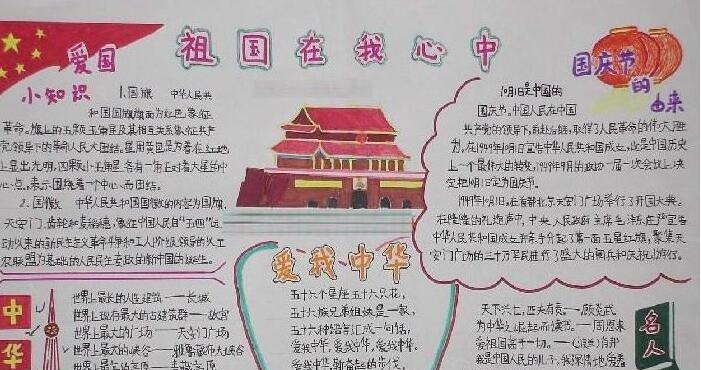 祖国在我心中
爱国
小知识
1.国旗 中华人民共
和国国旗旗面为红色,象征
革命。旗上的五颗五角星及其相互关系象征共产
党领导下的革命人民大团结。星用黄色是为着在红地
上显出光明,四颗小五角星各有一角正对着大星的中
心点,表示围绕着一个中心而团结。
2.国徽 中华人民共和国国徽的内容为国旗、
天安门、齿轮和麦稻穗,象征中国人民自“五四”运
动以来的新民主主义革命斗争和工人阶级领导的以工
农联盟为基础的人民民主专政的新中国的诞生。
国庆节
的
由来
10月1日是中国的
国庆节。中国人民在中国
共产党的领导下,前赴后继,取得了人民革命的伟大胜
利。在1949年10月1日宣告中华人民共和国成立,这是中国历史
上一个最伟大的转变。1949年9月的政协一届一次会议上决
定把10月1日定为国庆节。
1949年10月1日,在首都北京天安门广场举行了开国大典。
在隆隆的礼炮声中,中央人民政府主席毛泽东庄严宣告
中华人民共和国成立,并亲手升起了第一面五星红旗。聚集天
安门广场的三十万军民进行了盛大的阅兵和庆祝游行。
爱我中华
五十六个星座五十六只花,
五十六族兄弟姐妹是一家,
五十六种语言汇成一句话,
爱我中华,爱我中华,爱我中华。
中华
世界上最长的人工建筑——长城
世界上最大的古建筑群——故宫
世界上最大的广场——天安门广场
世界上最大的峡谷——雅鲁藏布大峡谷
天下兴亡,匹夫有责。——顾炎武
为中华之崛起而读书。——周恩来
名人